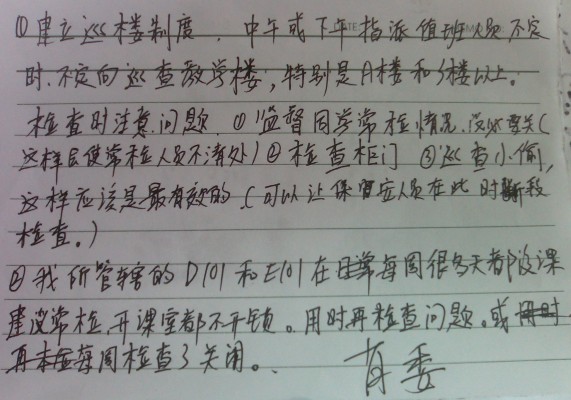 ①建立巡楼制度，中午或下午指派值班人员,不定
时.不定向巡查教学楼，特别是A楼和5楼以上。
检查时注意问题.①监督同学常检情况.没必要关(
这样后使常检人员不清处)②检查柜门 ③巡查小偷,
这样应该是最有效的.(可以让保安人员在此时段
检查。)
②我所管辖的D101和E101在日常每周很多天都没课
建议常检.开课室都不开锁。用时再检查问题。或
再本每周检查了关闭。